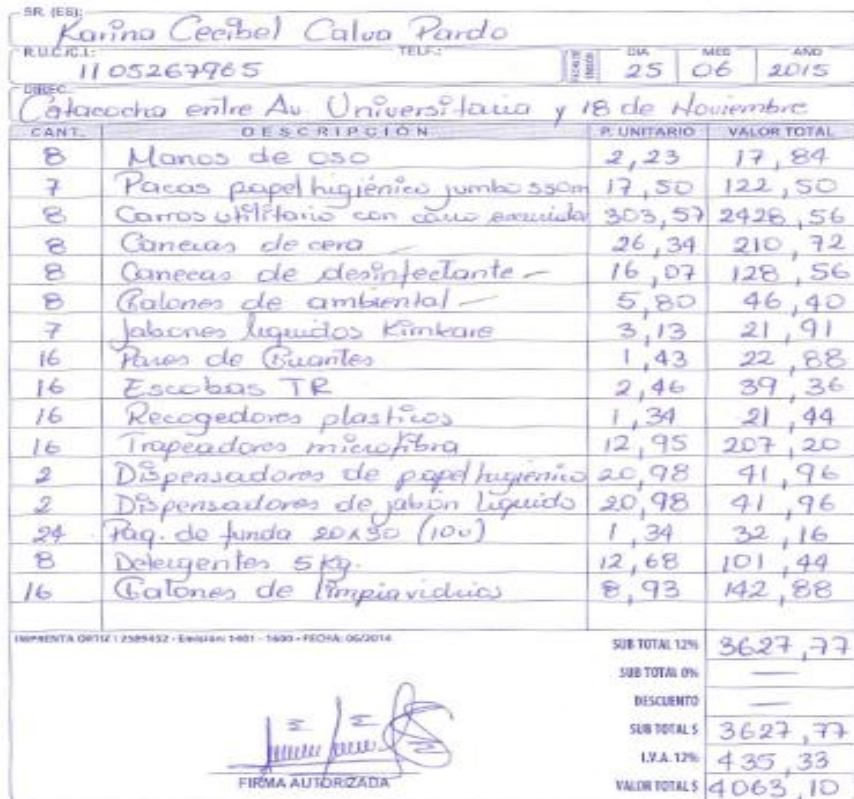 SR. (ES): Karina Cecibel Calva Pardo
R.U.C./C.I.: 1105267965 TELF.: DIA 25 MES 06 AÑO 2015
DIREC. Catacocha entre Av. Universitaria y 18 de Noviembre
CANT. DESCRIPCIÓN P. UNITARIO VALOR TOTAL
8 Manos de oso 2,23 17,84
7 Pacas papel higiénico jumbo 550m 17,50 122,50
8 Carros utilitario con carro 303,57 2428,56
8 Canecas de cera 26,34 210,72
8 Canecas de desinfectante 16,07 128,56
8 Galones de ambiental 5,80 46,40
7 Jabones liquidos Kimkare 3,13 21,91
16 Pares de Guantes 1,43 22,88
16 Escobas TR 2,46 39,36
16 Recogedores plasticos 1,34 21,44
16 Trapeadores microfibra 12,95 207,20
2 Dispensadores de papel higienico 20,98 41,96
2 Dispensadores de jabón liquido 20,98 41,96
24 Paq. de funda 20x30 (100) 1,34 32,16
8 Detergentes 5 Kg. 12,68 101,44
16 Galones de limpiavidrios 8,93 142,88
IMPRENTA ORTIZ / 2589452 - Emisión: 1401 - 1600 - FECHA: 06/2014
SUB TOTAL 12% 3627,77
SUB TOTAL 0% —
DESCUENTO —
SUB TOTAL $ 3627,77
I.V.A. 12% 435,33
FIRMA AUTORIZADA VALOR TOTAL $ 4063,10